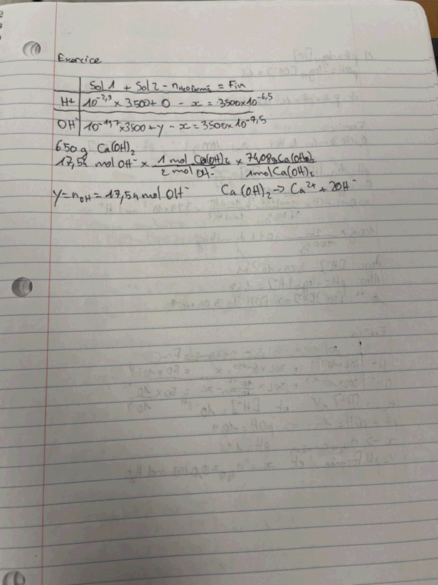 Exercice
Sol 1 + Sol 2 - n = Fin
H+ 10^-2,3 × 3500 + 0 - x = 3500 × 10^-6,5
OH- 10^-11,7 × 3500 + y - x = 3500 × 10^-7,5
650 g Ca(OH)2
17,54 mol OH- × 1 mol Ca(OH)2 / 2 mol OH- × 74,08g Ca(OH)2 / 1 mol Ca(OH)2
y = nOH = 17,54 mol OH- Ca(OH)2 → Ca2+ + 2OH-